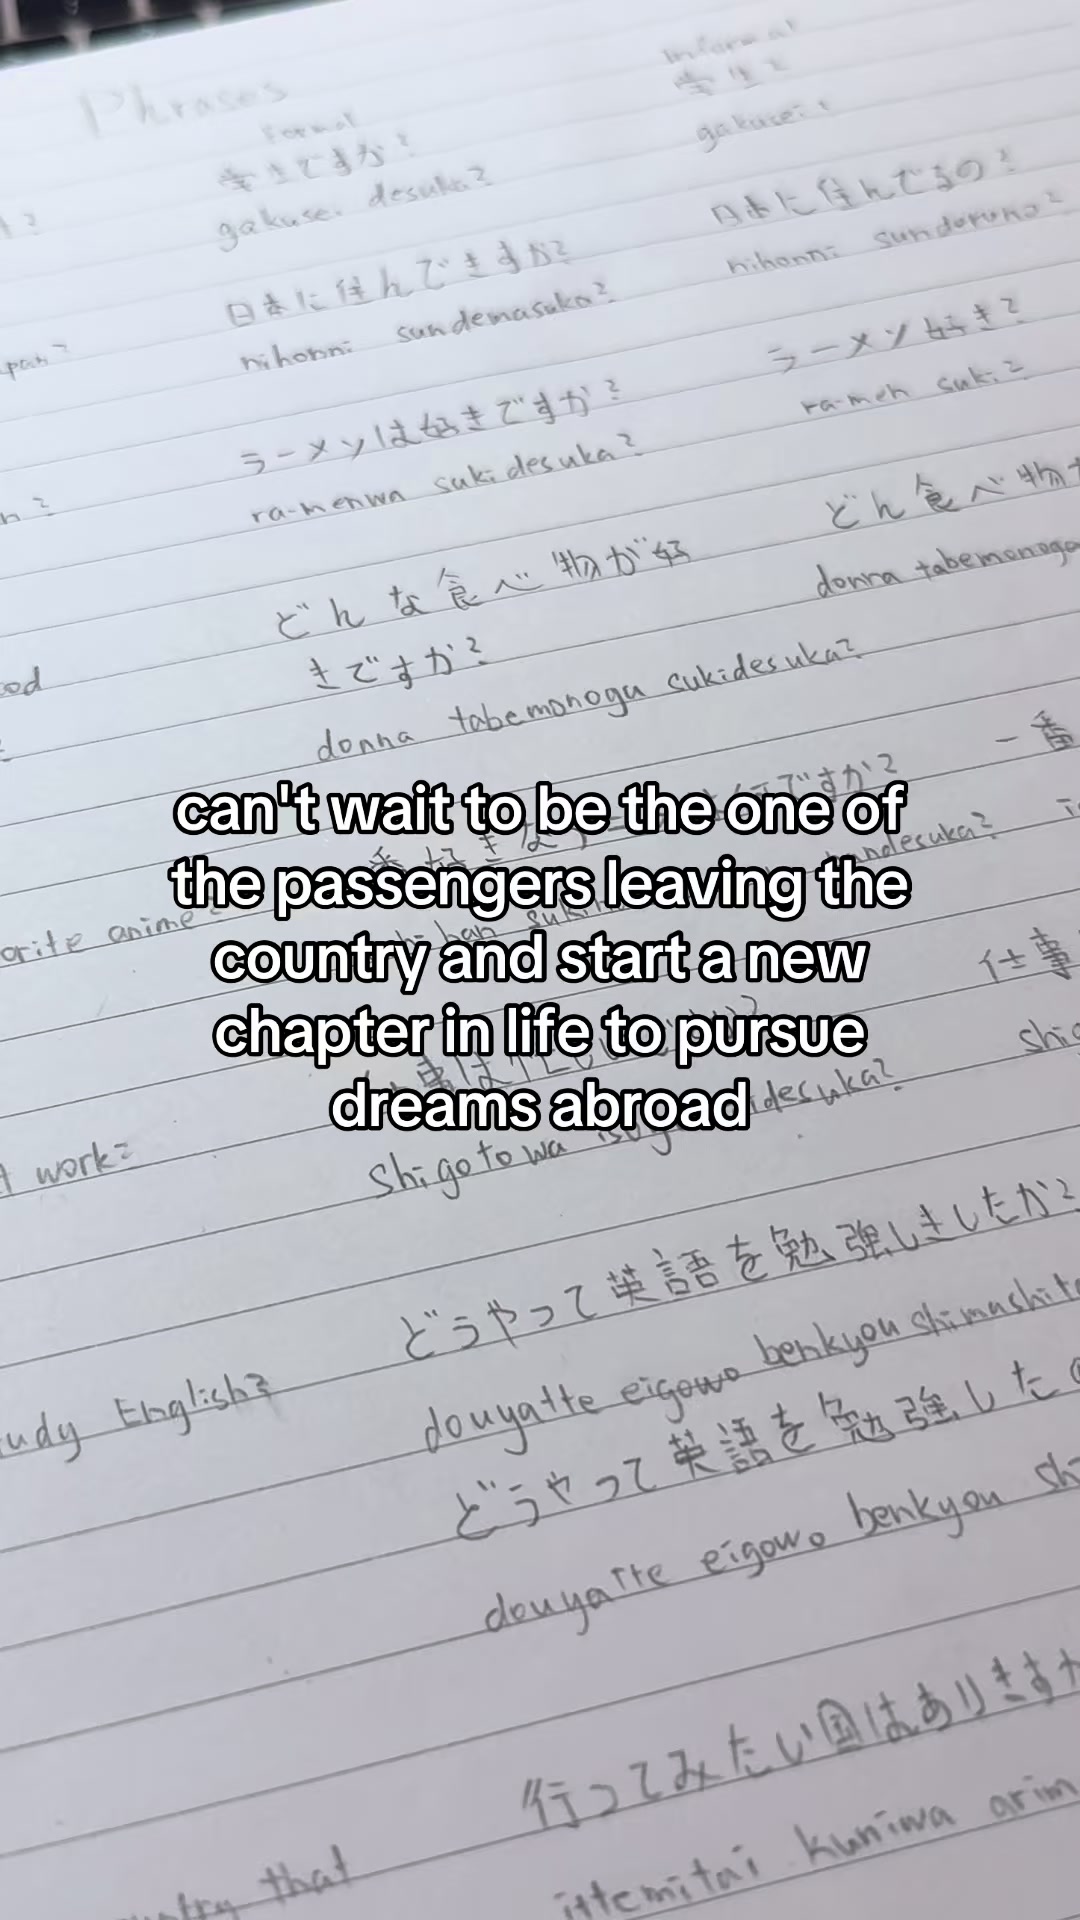 Phrases
informal
formal
学生?
学生ですか?
gakusei?
gakusei desuka?
日本に住んでるの?
日本に住んできすか?
nihonni sunderuno?
nihonni sundemasuka?
pan?
ラーメン好き?
ラーメンは好きですか?
ra-men suki?
ra-menwa sukidesuka?
n?
どん食べ物
どんな食べ物が好
donna tabemonoga
きですか?
ood
donna tabemonoga sukidesuka?
一番
can't wait to be the one of
the passengers leaving the
country and start a new
chapter in life to pursue
dreams abroad
ですか?
ndesuka?
orite anime?
仕事
shig
t work?
shigotowa desuka?
どうやって英語を勉強しきしたか?
udy English?
douyatte eigowo benkyou shimashita
どうやって英語を勉強した
douyatte eigowo benkyou sh
行ってみたい国はありきすか
ntry that
ittemitai kuniwa arim